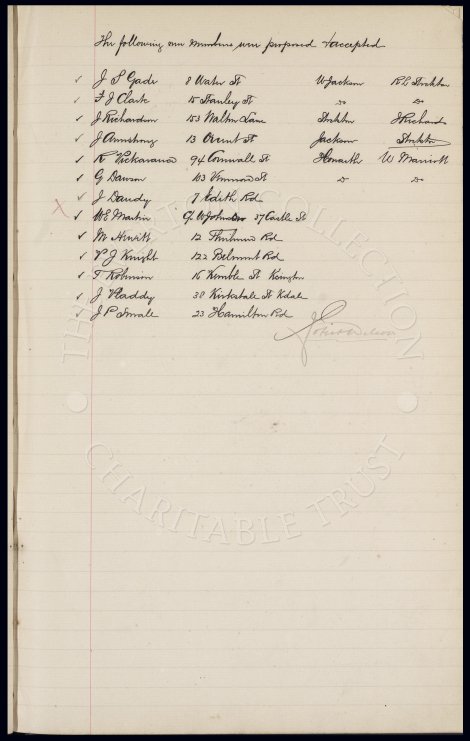 The following new members were proposed & accepted
✓ J S Gade 8 Water St W Jackson R E Stockton
✓ F J Clark 15 Stanley St do do
✓ J Richardson 153 Walton Lane Stockton J Richard
✓ J Armstrong 13 St Jackson Stockton
✓ R Vickavance 94 Cornwall St Howarth W Marriott
✓ G Dawson 103 St do do
✓ J Dandy 7 Edith Rd
X ✓ W E Martin c/o W Johnson 37 Castle St
✓ M Hewitt 12 Rd
✓ V J Knight 122 Belmont Rd
✓ T Robinson 16 Kemble St Kensington
✓ J 38 Kirkstale St Kdale
✓ J P Smale 23 Hamilton Rd
THE COLLECTION
CHARITABLE TRUST